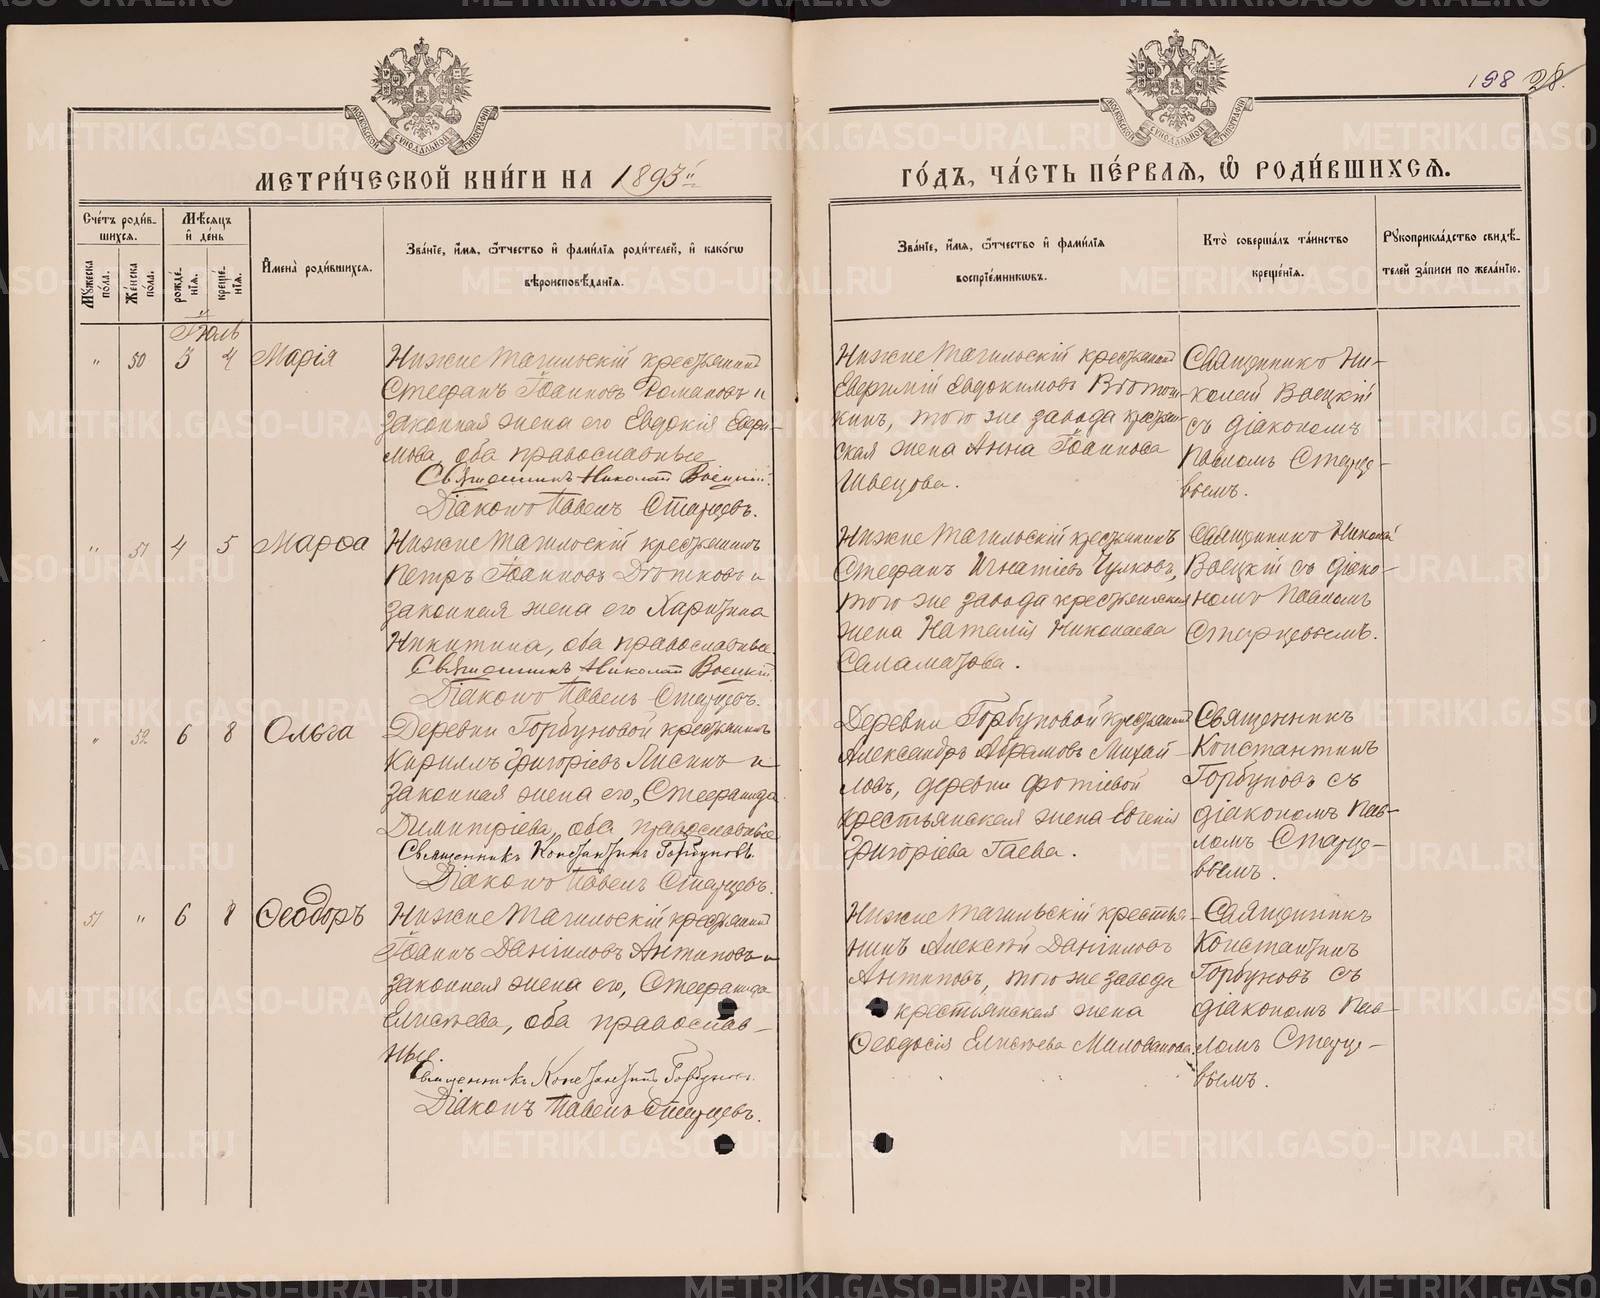 198 28.
МОСКОВСКОЙ СИНОДАЛЬНОЙ ТИПОГРАФІИ
МОСКОВСКОЙ СИНОДАЛЬНОЙ ТИПОГРАФІИ
МЕТРИ́ЧЕСКОЙ КНИ́ГИ НА 1895й
ГО́ДЪ, ЧА́СТЬ ПЕ́РВАѦ, Ѽ РОДИ́ВШИХСѦ.
Сче́тъ роди́в-
шихсѧ.
Мꙋжеска по́ла.
Же́нска по́ла.
Мѣ́сѧцъ
и҆ де́нь
рожде́нїѧ.
креще́нїѧ.
И҆мена̀ роди́вшихсѧ.
Зва́нїе, и҆́мѧ, ѻ҆́тчество и҆ фами́лїѧ роди́телей, и҆ како́гѡ
вѣроисповѣ́данїѧ.
Зва́нїе, и҆́мѧ, ѻ҆́тчество и҆ фами́лїѧ
воспрїе́мникѡвъ.
Кто̀ соверша́лъ та́инство
креще́нїѧ.
Рꙋкоприкла́дство свидѣ́-
телей за́писи по жела́нїю.
Іюль
" 50 3 4 Марія
Нижне Тагильскій крестьянинъ
Стефанъ Іоанновъ Романовъ и
законная жена его Евдокія Евфи-
мова, оба православные
Священникъ Николай Воецкій.
Діаконъ Павелъ Старцевъ.
Нижне Тагильскій крестьянинъ
Евфимій Евдокимовъ Вотин-
кинъ, того же завода крестьян-
ская жена Анна Іоаннова
Швецова.
Священникъ Ни-
колай Воецкій
съ діакономъ
Павломъ Старце-
вымъ.
" 51 4 5 Марѳа
Нижне Тагильскій крестьянинъ
Петръ Іоанновъ Дютковъ и
законная жена его Харитина
Никитина, оба православные.
Священникъ Николай Воецкій
Діаконъ Павелъ Старцевъ.
Нижне Тагильскій крестьянинъ
Стефанъ Игнатіевъ Чулковъ,
того же завода крестьянская
жена Наталія Николаева
Саламатова.
Священникъ Николай
Воецкій съ діако-
номъ Павломъ
Старцевымъ.
" 52 6 8 Ольга
Деревни Горбуновой крестьянинъ
Кириллъ Григоріевъ Лисинъ и
законная жена его, Стефанида
Димитріева, оба православные
Священникъ Константинъ Горбуновъ.
Діаконъ Павелъ Старцевъ.
Деревни Горбуновой крестьянинъ
Александръ Абрамовъ Михай
ловъ, деревни Фотіевой
крестьянская жена Евгенія
Григоріева Гаева.
Священникъ
Константинъ
Горбуновъ съ
діакономъ Пав-
ломъ Старце-
вымъ.
51 " 6 8 Ѳеодоръ
Нижне Тагильскій крестьянинъ
Іоаннъ Даніиловъ Антиповъ и
законная жена его, Стефанида
Елисѣева, оба православ-
ные.
Священникъ Константинъ Горбуновъ.
Діаконъ Павелъ Старцевъ.
Нижне Тагильскій крестья-
нинъ Алексѣй Даніиловъ
Антиповъ, того же завода
крестьянская жена
Ѳеодосія Елисѣева Милованова.
Священникъ
Константинъ
Горбуновъ съ
діакономъ Пав-
ломъ Старце-
вымъ.